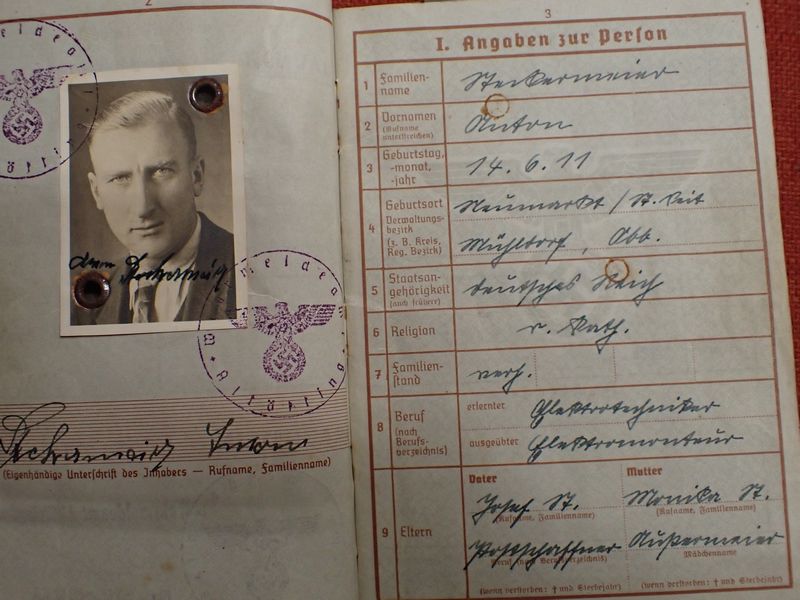 2
3
I. Angaben zur Person
1 Familien-
name
Steckermeier
2 Vornamen
(Rufname
unterstreichen)
Anton
3 Geburtstag,
-monat,
-jahr
14. 6. 11
4 Geburtsort
Verwaltungs-
bezirk
(z. B. Kreis,
Reg. Bezirk)
Neumarkt / St. Veit
Mühldorf, Obb.
5 Staatsan-
gehörigkeit
(auch frühere)
deutsches Reich
6 Religion
r. kath.
7 Familien-
stand
verh.
8 Beruf
(nach
Berufs-
verzeichnis)
erlernter Elektrotechniker
ausgeübter Elektromonteur
9 Eltern
Vater
Josef St.
(Rufname, Familienname)
Postschaffner
Beruf (nach Berufsverzeichnis)
(wenn verstorben: † und Sterbejahr)
Mutter
Monika St.
(Rufname, Familienname)
Außermeier
Mädchenname
(wenn verstorben: † und Sterbejahr)
Anton
(Eigenhändige Unterschrift des Inhabers — Rufname, Familienname)